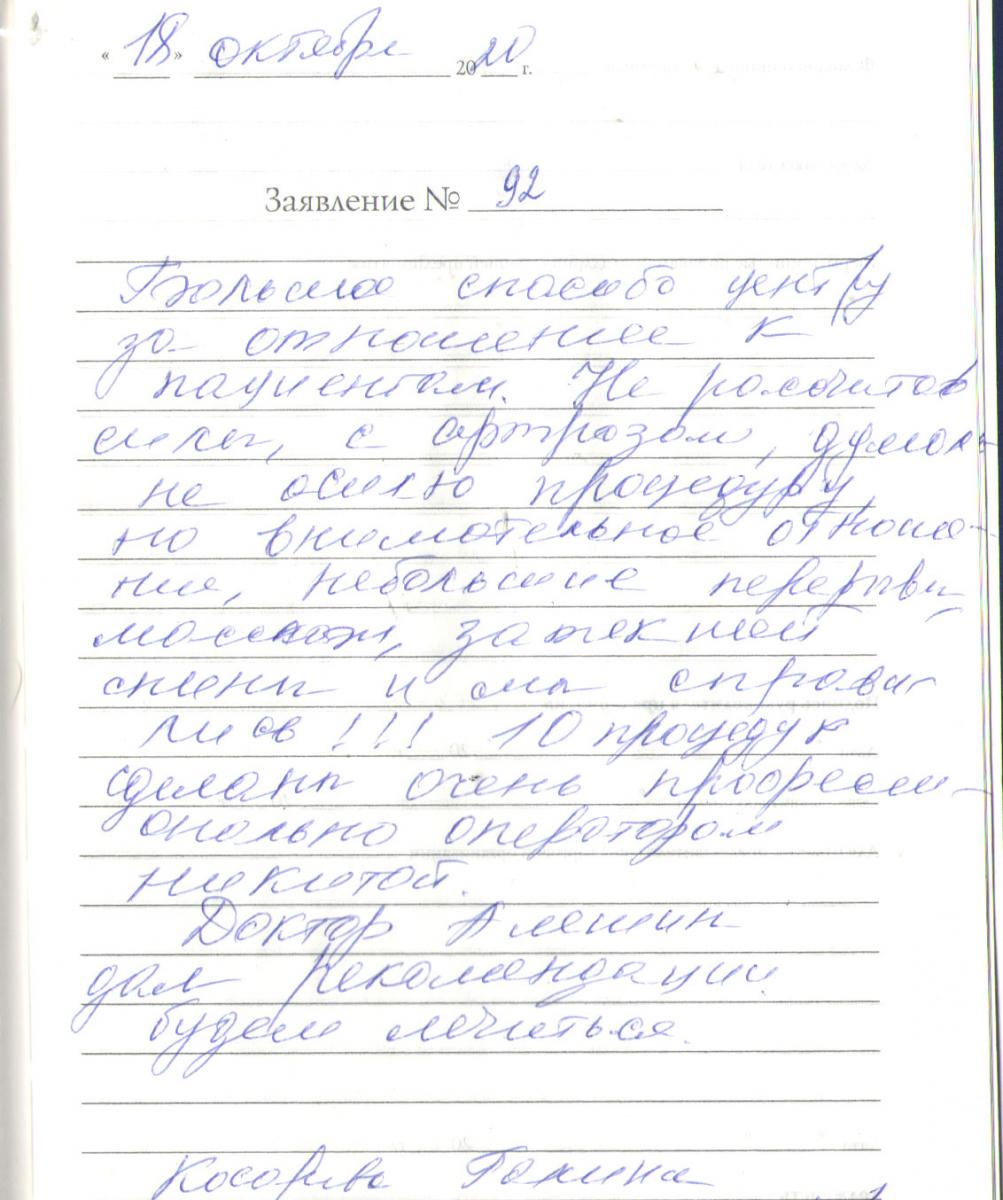 « 18 » октября 2020 г.
Заявление № 92
Большое спасибо центру
за отношение к
пациентам. Не рассчитав
силы, с артрозом, думала
не осилю процедуру,
но внимательное отноше-
ние, небольшие перерывы,
массаж, за
спины и мы справи
лись!!! 10 процедур
сделаны очень професси-
онально оператором
Никитой.
Доктор Алешин
дал рекомендации.
будем лечиться.
Галина